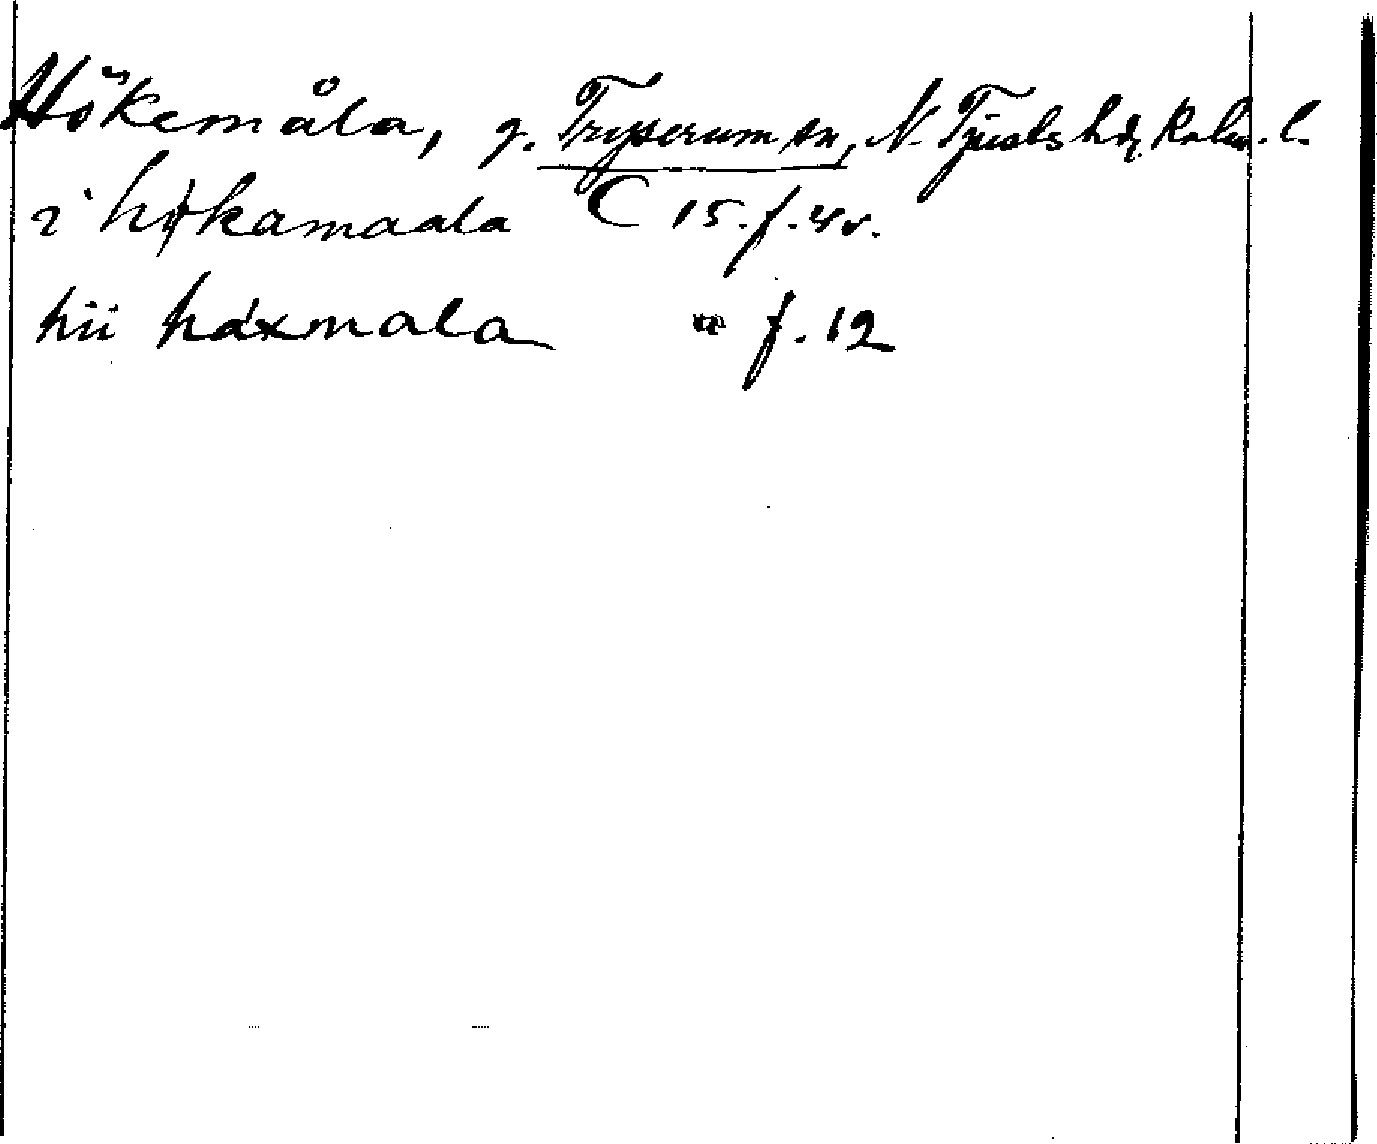 Hökemåla, g. Tryserum sn, N. Tjusts hd, Kalm. l.
i høkamaala C 15. f. 4v.
hii haxmala " f. 12